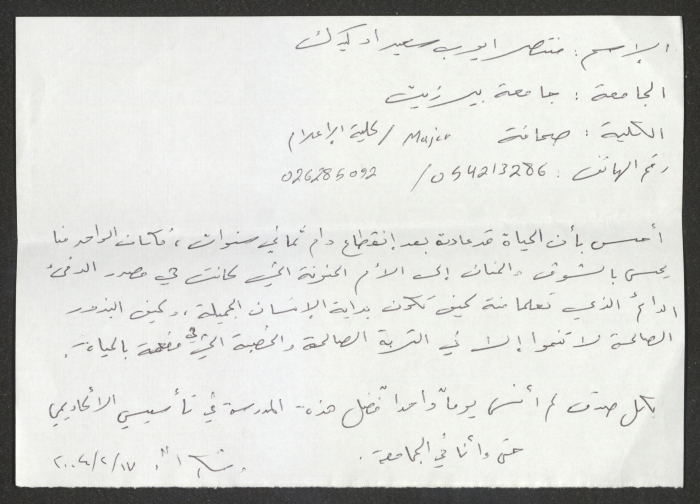 الإسم : منتصر ايوب سعيد ادكيدك
الجامعة : جامعة بيرزيت
الكلية : صحافة Major / كلية الإعلام
رقم الهاتف : 054213286 / 026285092
أحس بأن الحياة قد عادت بعد إنقطاع دام ثماني سنوات ، فكان الواحد منا
يحس بالشوق والحنان إلى الأم الحنونة التي كانت هي مصدر الدفئ
الدائم الذي تعلمنا منه كيف تكون بداية الإنسان الجميلة ، وكيف البذور
الصالحة لا تنموا إلا في التربة الصالحة والخصبة التي هي مفعمة بالحياة .
بكل صدق لم أنس يوماً واحداً فضل هذه المدرسة في تأسيسي الأكاديمي
حتى وأنا في الجامعة .
وشكراً . ٢٠٠٤/٢/١٧